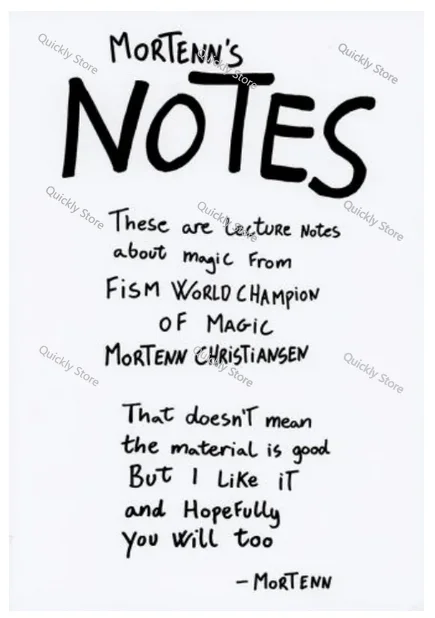 MORTENN'S
NOTES
These are Lecture Notes
about magic From
FiSM WORLD CHAMPioN
OF MAGiC
MORTENN CHRiSTiANSEN
That doesn'T mean
the material is good
BuT I LiKe iT
and HopeFully
you Will too
– MORTENN
Quickly Store
Quickly Store
Quickly Store
Quickly Store
Quickly Store
Quickly Store
Quickly Store
Quickly Store
Quickly Store